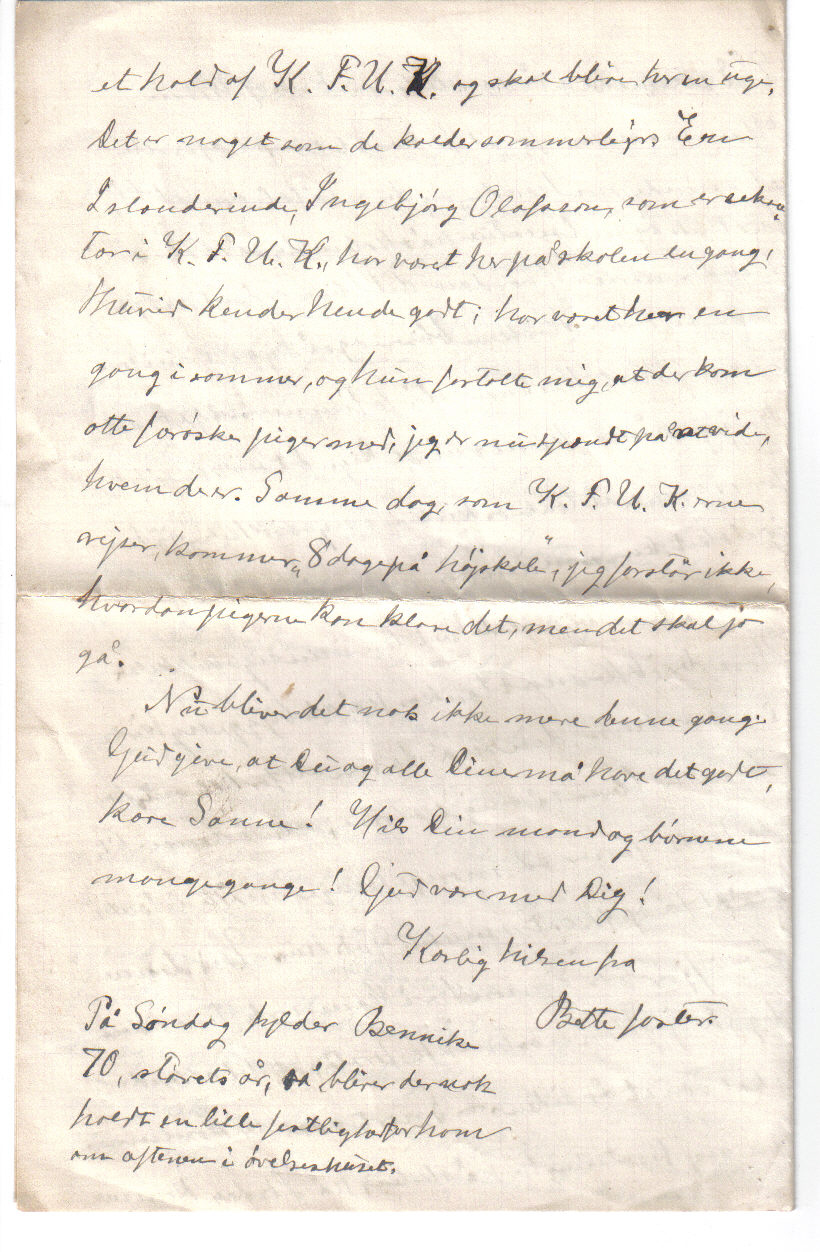 et hold af K. F. U. K. og skal blive her en uge.
Det er noget som de kalder sommerlejr. En
Islænderinde, Ingebjørg Olafsson, som er sekre-
tær i K. F. U. K., har været her på skolen en gang,
Thurid kender hende godt; har været her en
gang i sommer, og hun fortalte mig, at der kom
otte færøske piger med, jeg er nu spændt på at vide,
hvem de er. Samme dag, som K. F. U. K. erne
rejser, kommer „8 dage på højskole“, jeg forstår ikke,
hvordan pigerne kan klare det, men det skal jo
gå.
Nu bliver det nok ikke mere denne gang.
Gud give, at Du og alle Dine må have det godt,
kære Sanne! Hils Din mand og børnene
mange gange! Gud være med Dig!
Kærlig hilsen fra
Bette faster.
På Søndag fylder Bennike
70, støvets år, så bliver der nok
holdt en lille festlighed for ham
om aftenen i øvelseshuset.